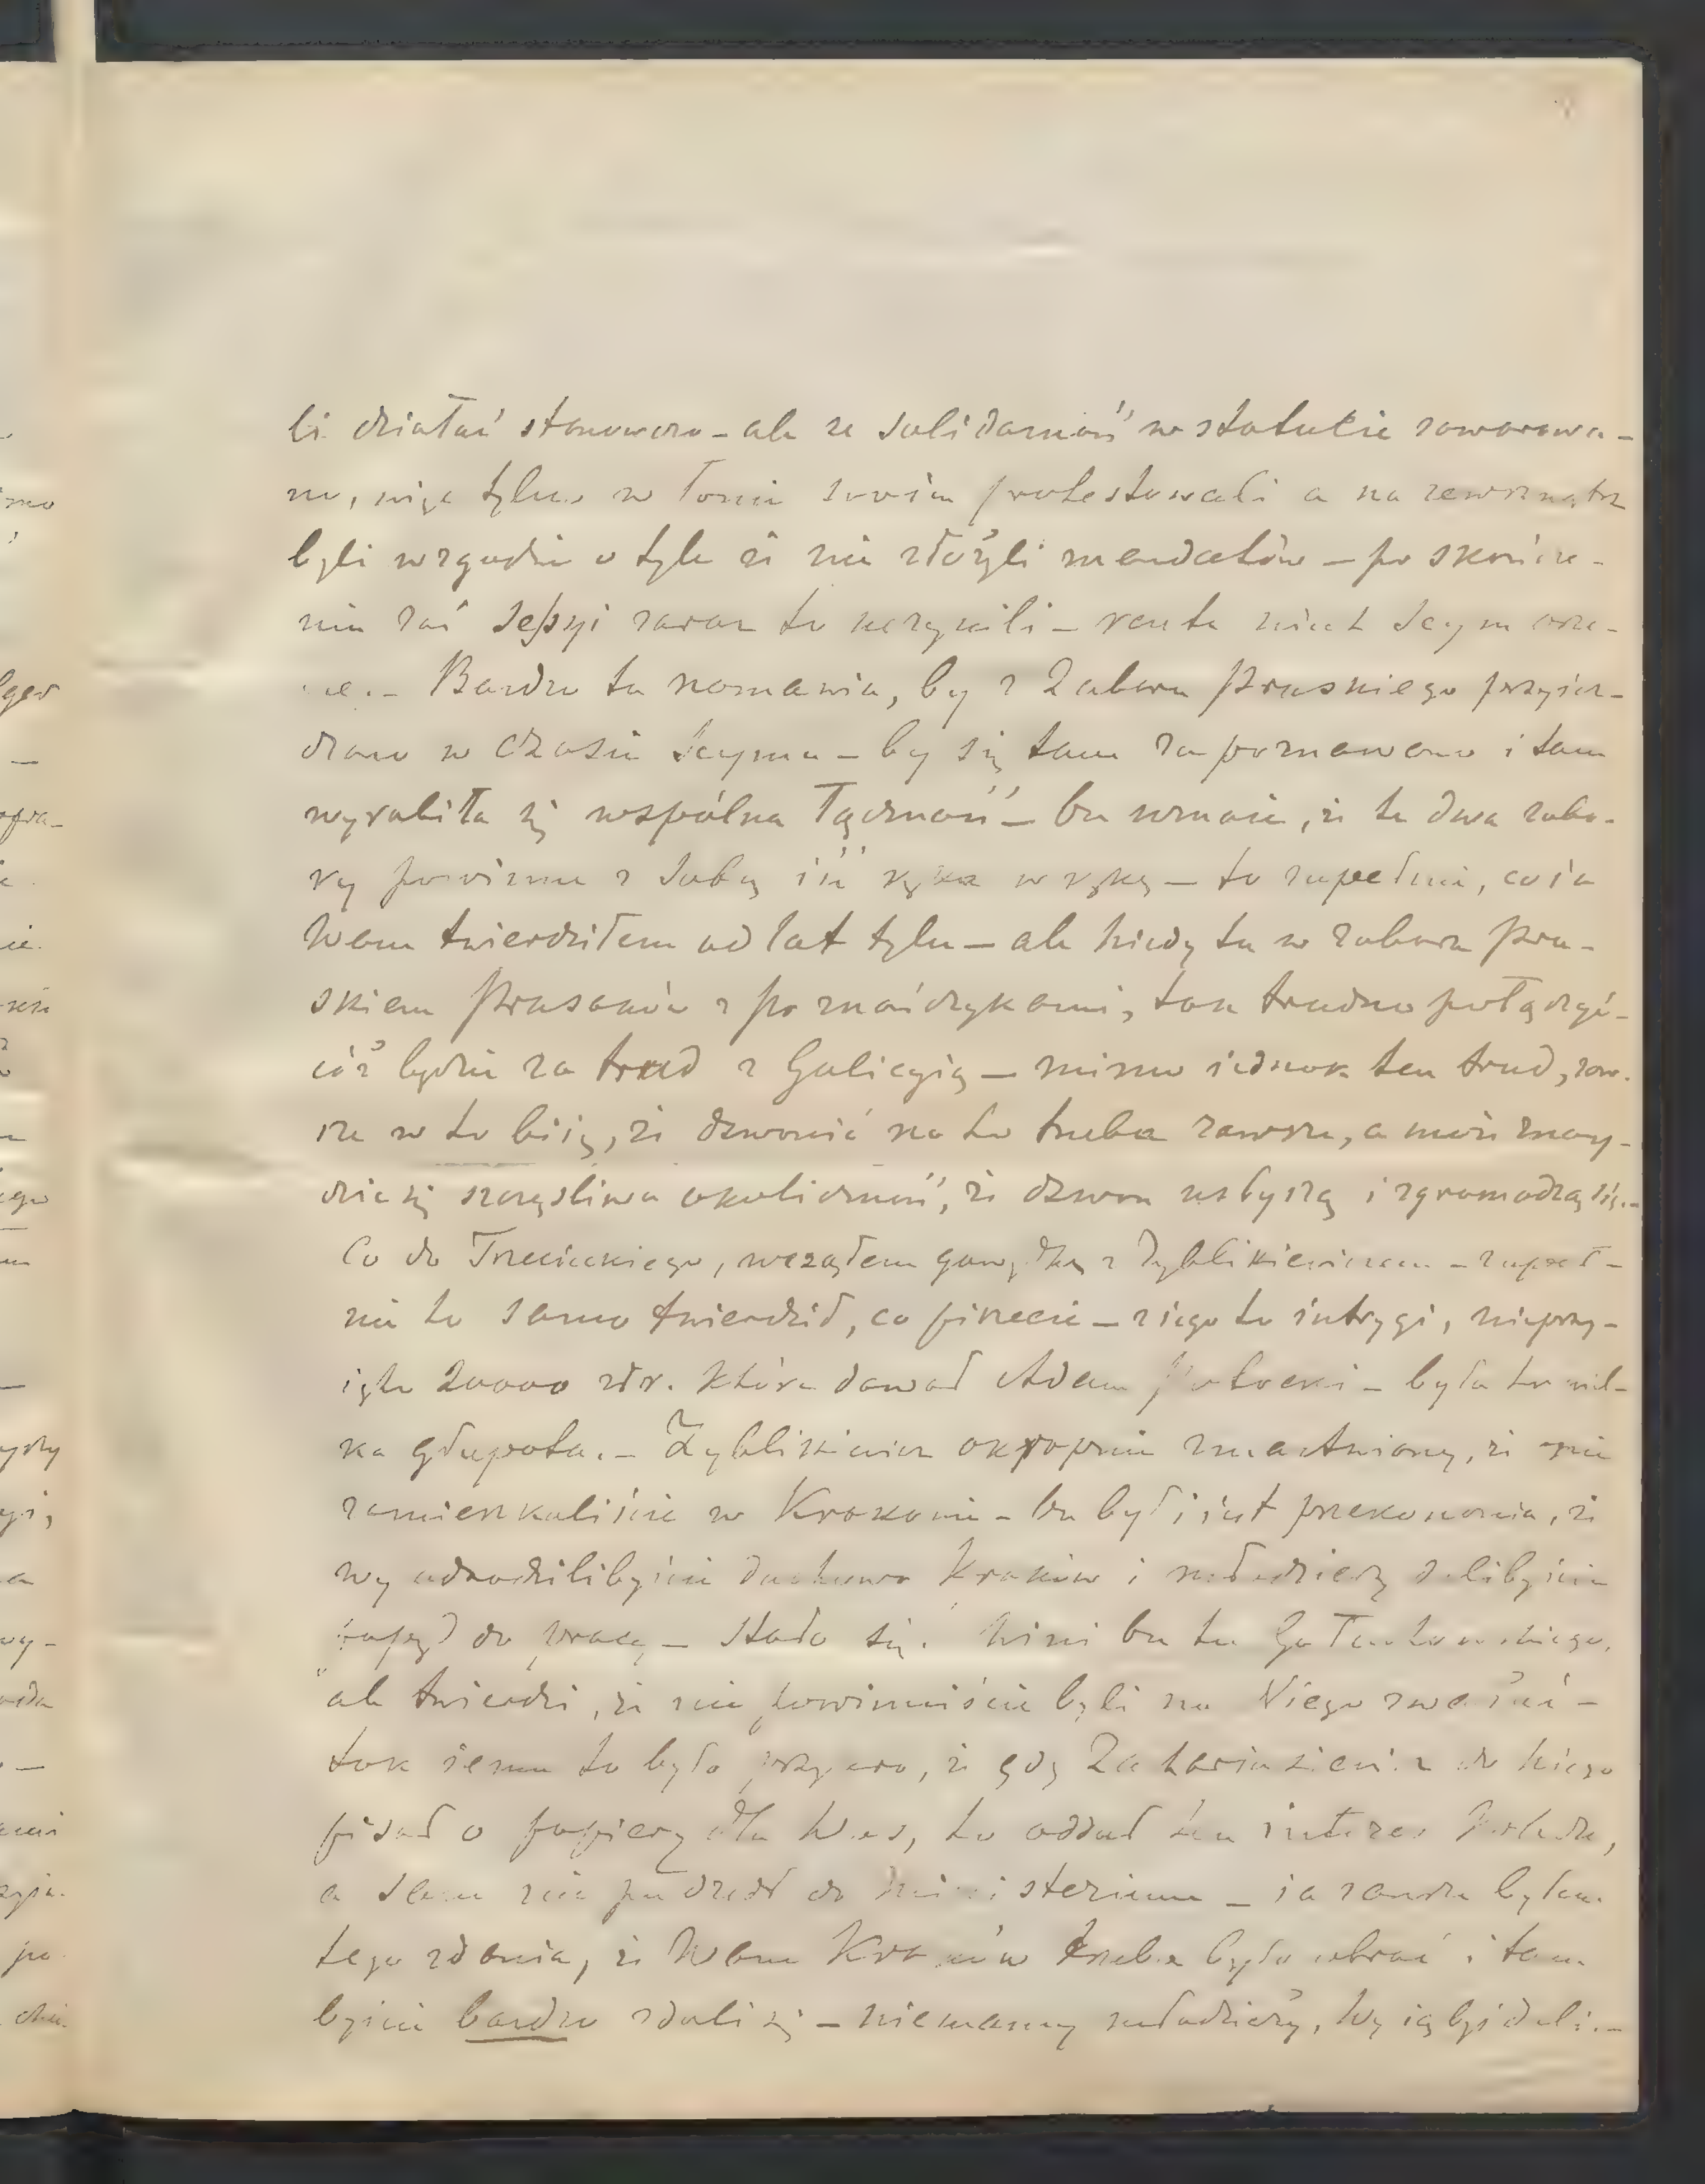 li działać stanowczo – ale że solidarność w statucie zawarowa-
na, więc tylko w łonie swoim protestowali a na zewnątrz
byli w zgodzie o tyle iż nie złożyli mandatów – po skończe-
niu zaś Sessyi zaraz to uczynili – resztę niech Seym orze-
Bardzo tu namawia, by z Zaboru Pruskiego przyież-
dżano w czasie Seymu – by się tam zapoznawano i tam
wyrabiła się wspólna łączność – bo uznaie, iż te dwa zabo-
ry powinne z sobą iść ręka w rękę – to zupełnie, co ia
Wam twierdziłem od lat tylu – ale kiedy tu w zaborze Pru-
skiem Prusaków z poznańczykami, tak trudno połączyć-
cóż będzie za trud z Galicyią – mimo iednak ten trud, zaw-
sze w to biię, iż dzwonić na to trzeba zawsze, a może znay-
dzie się szczęśliwa okoliczność, iż dzwon usłyszą i zgromadzą się.–
Co do Trzecieckiego, wszcząłem gawędkę z Zyblikiewiczem – zupeł-
nie to samo twierdził, co piszecie – z iego to intrygi, nieprzy-
ięto 20000 złr. które dawał Adam Potocki – była to wiel-
ka głupota. – Zyblikiewicz okropnie zmartwiony, iż nie
zamieszkaliście w Krakowie – bo był i iest przekonania, iż
wy odrodzilibyście duchowo Kraków i młodzieży dalibyście
popęd do pracy – Stało się. Wini bo tu Gołuchowskiego,
ale twierdzi, iż nie powinniście byli na Niego zważać –
tak iemu to było przykro, iż gdy Zachariasiewicz do niego
pisał o papiery dla Was, to oddał ten interes
a sam nie poszedł do Ministerium – ia zawsze byłam
tego zdania, iż Wam Kraków trzeba było obrać i tam
byście bardzo zdali się – niemamy młodzieży, Wy ią byś dali.–